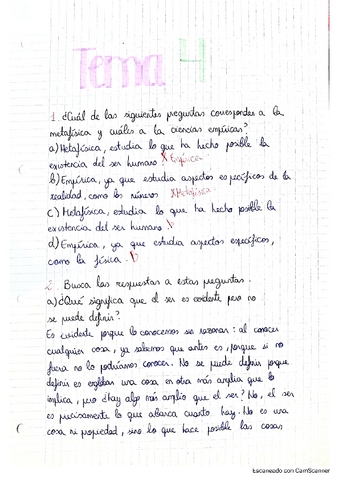 Tema 4
1. ¿Cuál de las siguientes preguntas corresponden a la
metafísica y cuáles a la ciencias empíricas?
a) Metafísica, estudia lo que ha hecho posible la
existencia del ser humano. X Empírica
b) Empírica, ya que estudia aspectos específicos de la
realidad, como los números X Metafísica
c) Metafísica, estudia lo que ha hecho posible la
existencia del ser humano. b
d) Empírica, ya que estudia aspectos específicos,
como la física. b
2. Busca las respuestas a estas preguntas.
a) ¿Qué significa que el ser es evidente pero no
se puede definir?
Es evidente porque lo conocemos sin razonar: al conocer
cualquier cosa, ya sabemos que antes es, porque si no
fuera no lo podríamos conocer. No se puede definir porque
definir es explicar una cosa en otra más amplia que lo
implica, pero ¿hay algo más amplio que el ser? No, el ser
es precisamente lo que abarca cuanto hay. No es una
cosa ni propiedad, sino lo que hace posible las cosas
Escaneado con CamScanner